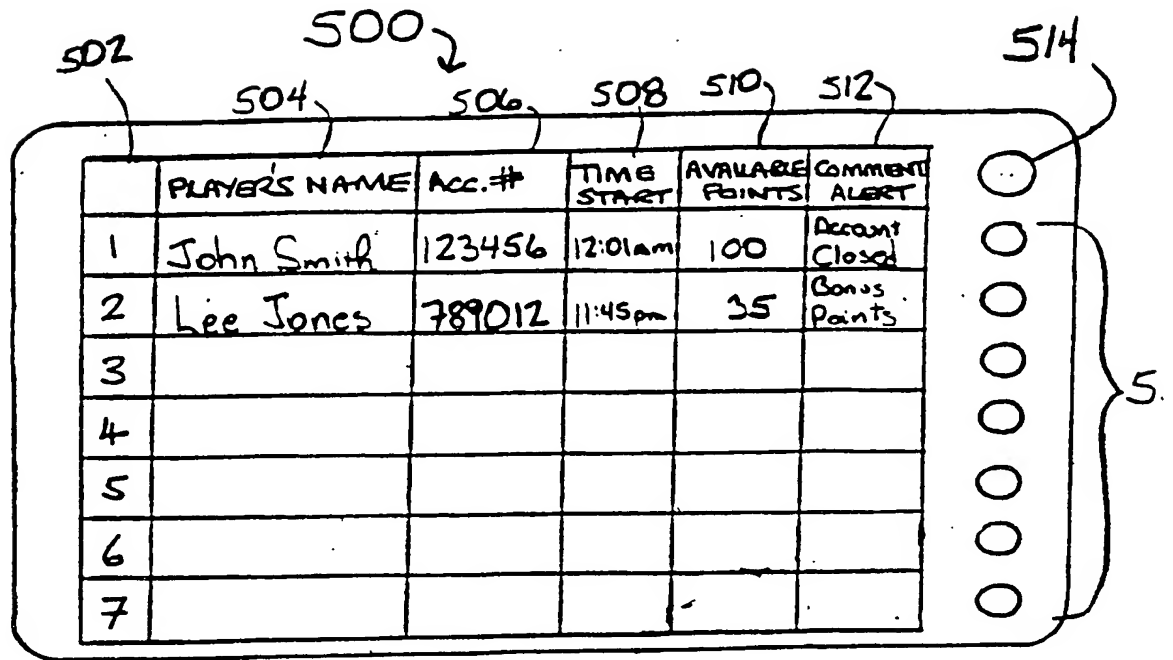 500
502
514
504 506 508 510 512
PLAYER'S NAME Acc.# TIME START AVAILABLE POINTS COMMENT ALERT
1 John Smith 123456 12:01am 100 Account Closed
2 Lee Jones 789012 11:45pm 35 Bonus Points
3
4
5
6
7
5.